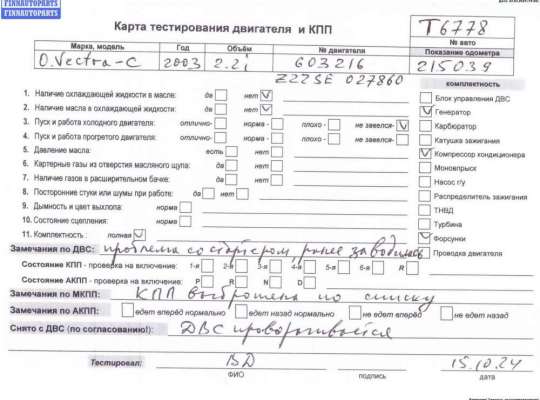 FINNAUTOPARTS
FINNAUTOPARTS
Карта тестирования двигателя и КПП
T6778
№ авто
Марка, модель Год Объём № двигателя Показание одометра
O.Vectra-C 2003 2.2i G03216 215039
Z22SE 027860
комплектность
1. Наличие охлаждающей жидкости в масле: да нет
2. Наличие масла в охлаждающей жидкости: да нет
3. Пуск и работа холодного двигателя: отлично- норма - плохо - не завелся-
4. Пуск и работа прогретого двигателя: отлично- норма - плохо- не завелся-
5. Давление масла: есть нет
6. Картерные газы из отверстия масляного щупа: да нет
7. Наличие газов в расширительном бачке: да нет
8. Посторонние стуки или шумы при работе: да нет
9. Дымность и цвет выхлопа: норма
10. Состояние сцепления: норма
11. Комплектность : полная
Блок управления ДВС
Генератор
Карбюратор
Катушка зажигания
Компрессор кондиционера
Моновпрыск
Насос г/у
Распределитель зажигания
ТНВД
Турбина
Форсунки
Проводка двигателя
Замечания по ДВС: проблема со стартером, ранее заводилась
Состояние КПП - проверка на включение: 1-я 2-я 3-я 4-я 5-я 6-я R
Состояние АКПП - проверка на включение: P R N D
Замечания по МКПП: КПП выброшена по списку
Замечания по АКПП: едет вперёд нормально едет назад нормально не едет вперёд не едет назад
Снято с ДВС (по согласованию!): ДВС проворачивается
Тестировал: ВD 15.10.24
ФИО подпись дата